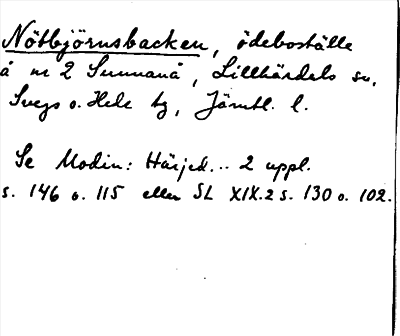 Nötbjörnsbacken, ödeboställe
å nr 2 Sunnanå, Lillhärdals sn,
Svegs o. Hede tg, Jämtl. l.
Se Modin: Härjed... 2 uppl.
s. 146 o. 115 eller SL XIX.2 s. 130 o. 102.